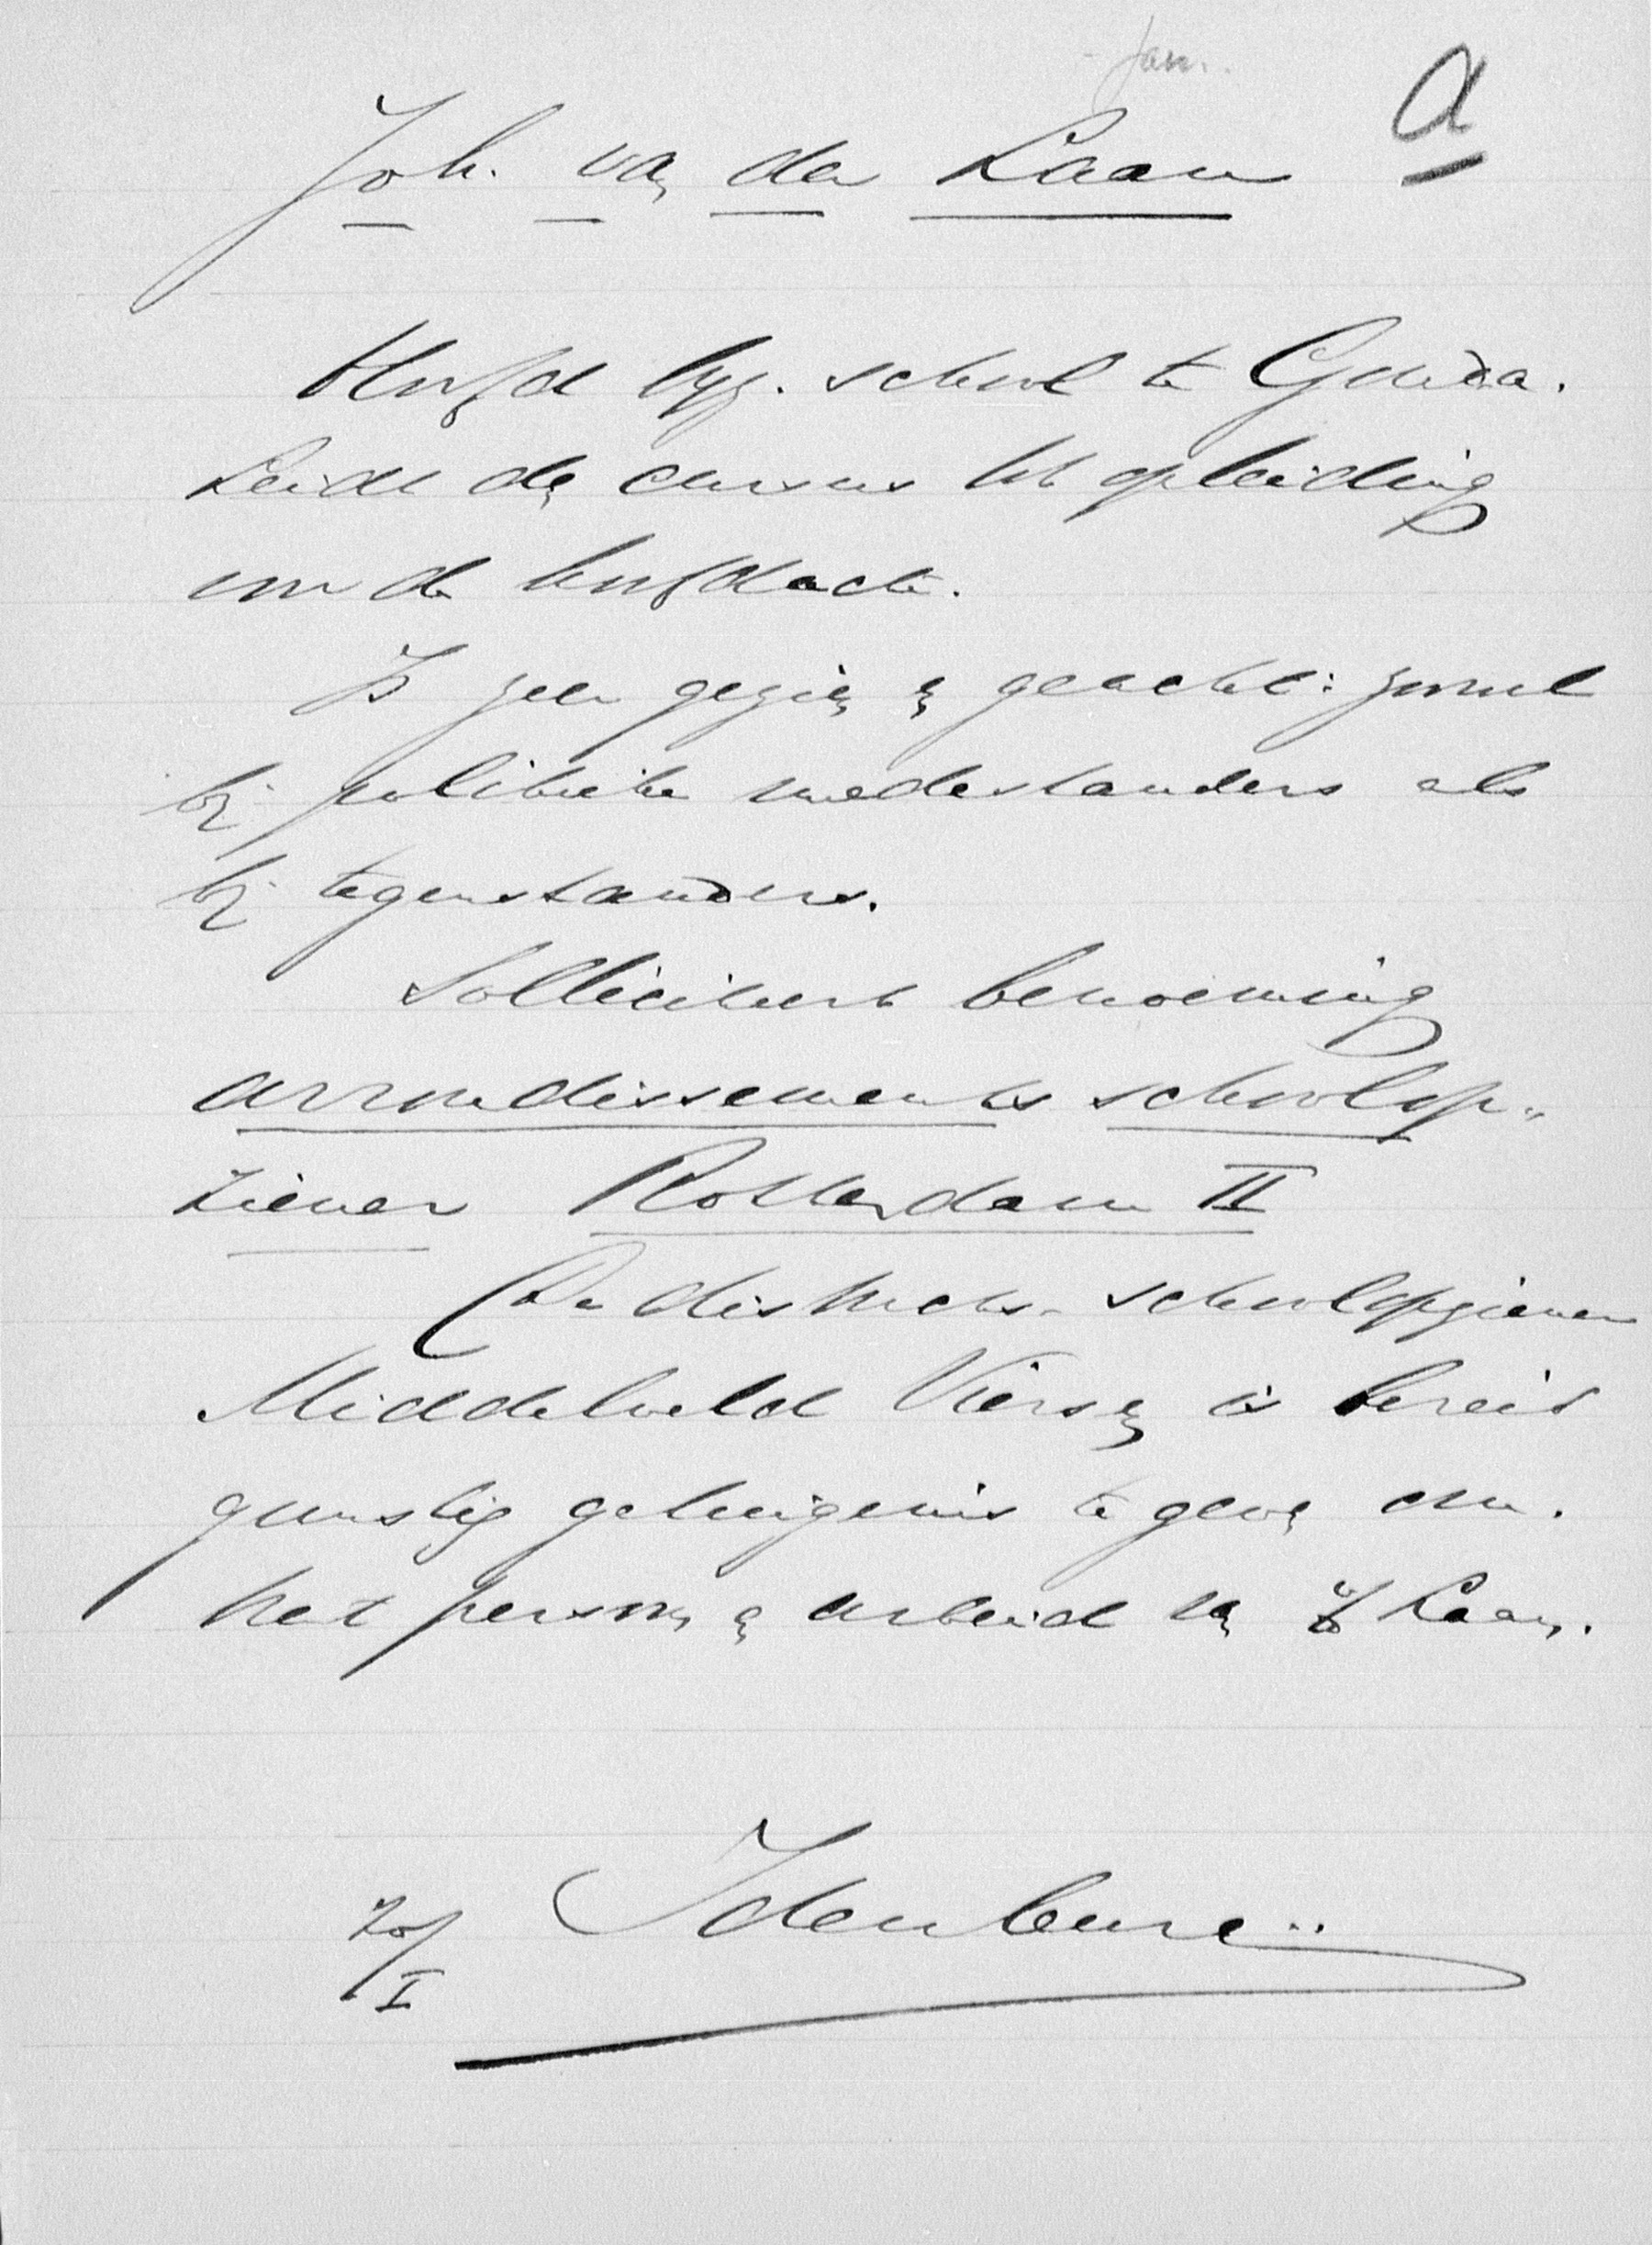 Jan.
a
Joh. van der Laan
Hoofd byz. school te Gouda.
Leidt den cursus tot opleiding
voor de hoofdacte.
Is zeer gezien en geacht: zowel
bij politieke medestanders als
bij tegenstanders.
Solliciteert benoeming
arrondissements schoolop-
ziener Rotterdam II
De districts-schoolopziener
Middelveld Viersen is bereid
gunstig getuigenis te geven om.
het persoon en arbeid van v/d Laan.
20/I Idenburg